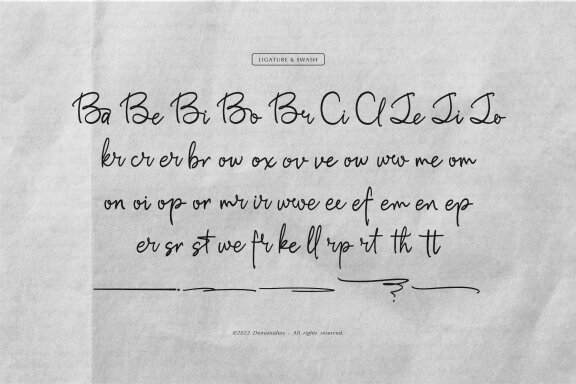 LIGATURE & SWASH
Ba Be Bi Bo Br Ci Cl Ie Ii Io
kr cr er br ow ox ov ve ow wo me om
on oi op or mr ir wwe ee ef em en ep
er sr st we fr ke ll rp rt th tt
©2022 Demustudios - All rights reserved.